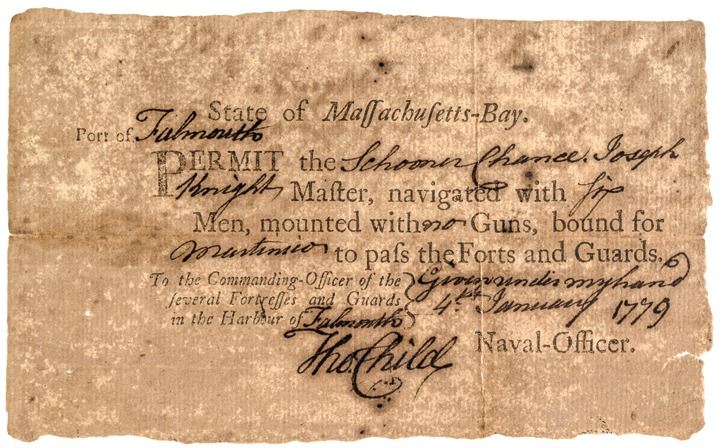 State of Maſſachuſetts-Bay.
Port of Falmouth
PERMIT the Schooner Chance. Joseph
Knight Maſter, navigated with six
Men, mounted with no Guns, bound for
Martinico to paſs the Forts and Guards.
To the Commanding-Officer of the
ſeveral Fortreſſes and Guards
in the Harbour of Falmouth
Given under my hand
4th January 1779
Naval-Officer.
Tho Child